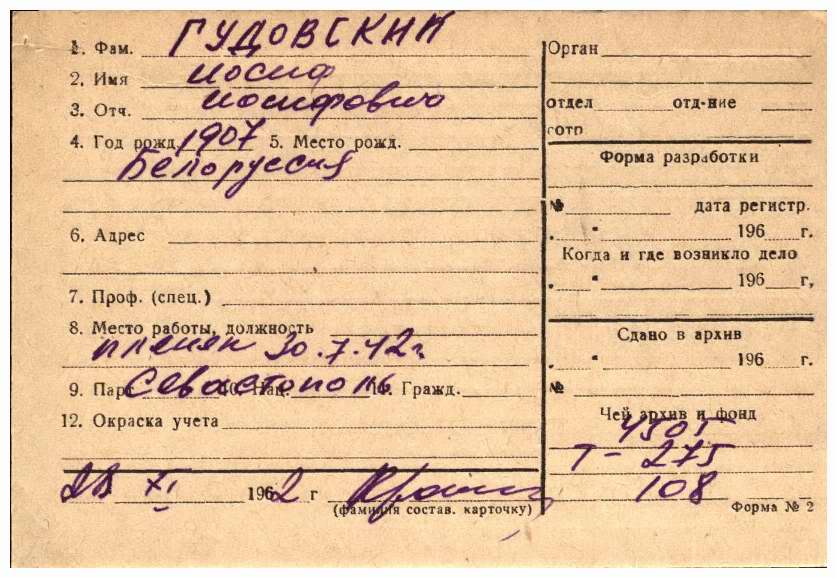 1. Фам. ГУДОВСКИЙ
2. Имя Иосиф
3. Отч. Иосифович
4. Год рожд. 1907 5. Место рожд.
Белоруссия
6. Адрес
7. Проф. (спец.)
8. Место работы, должность
пленен 30.7.42 г.
9. Парт. 10. Нац. 11. Гражд.
Севастополь
12. Окраска учета
28 XI 1962 г
(фамилия состав. карточку)
Орган
отдел отд-ние
гото
Форма разработки
№ дата регистр.
. " 196 г.
Когда и где возникло дело
. " 196 г,
Сдано в архив
. " 196 г.
№
Чей архив и фонд
4505
Т- 275
108
Форма № 2